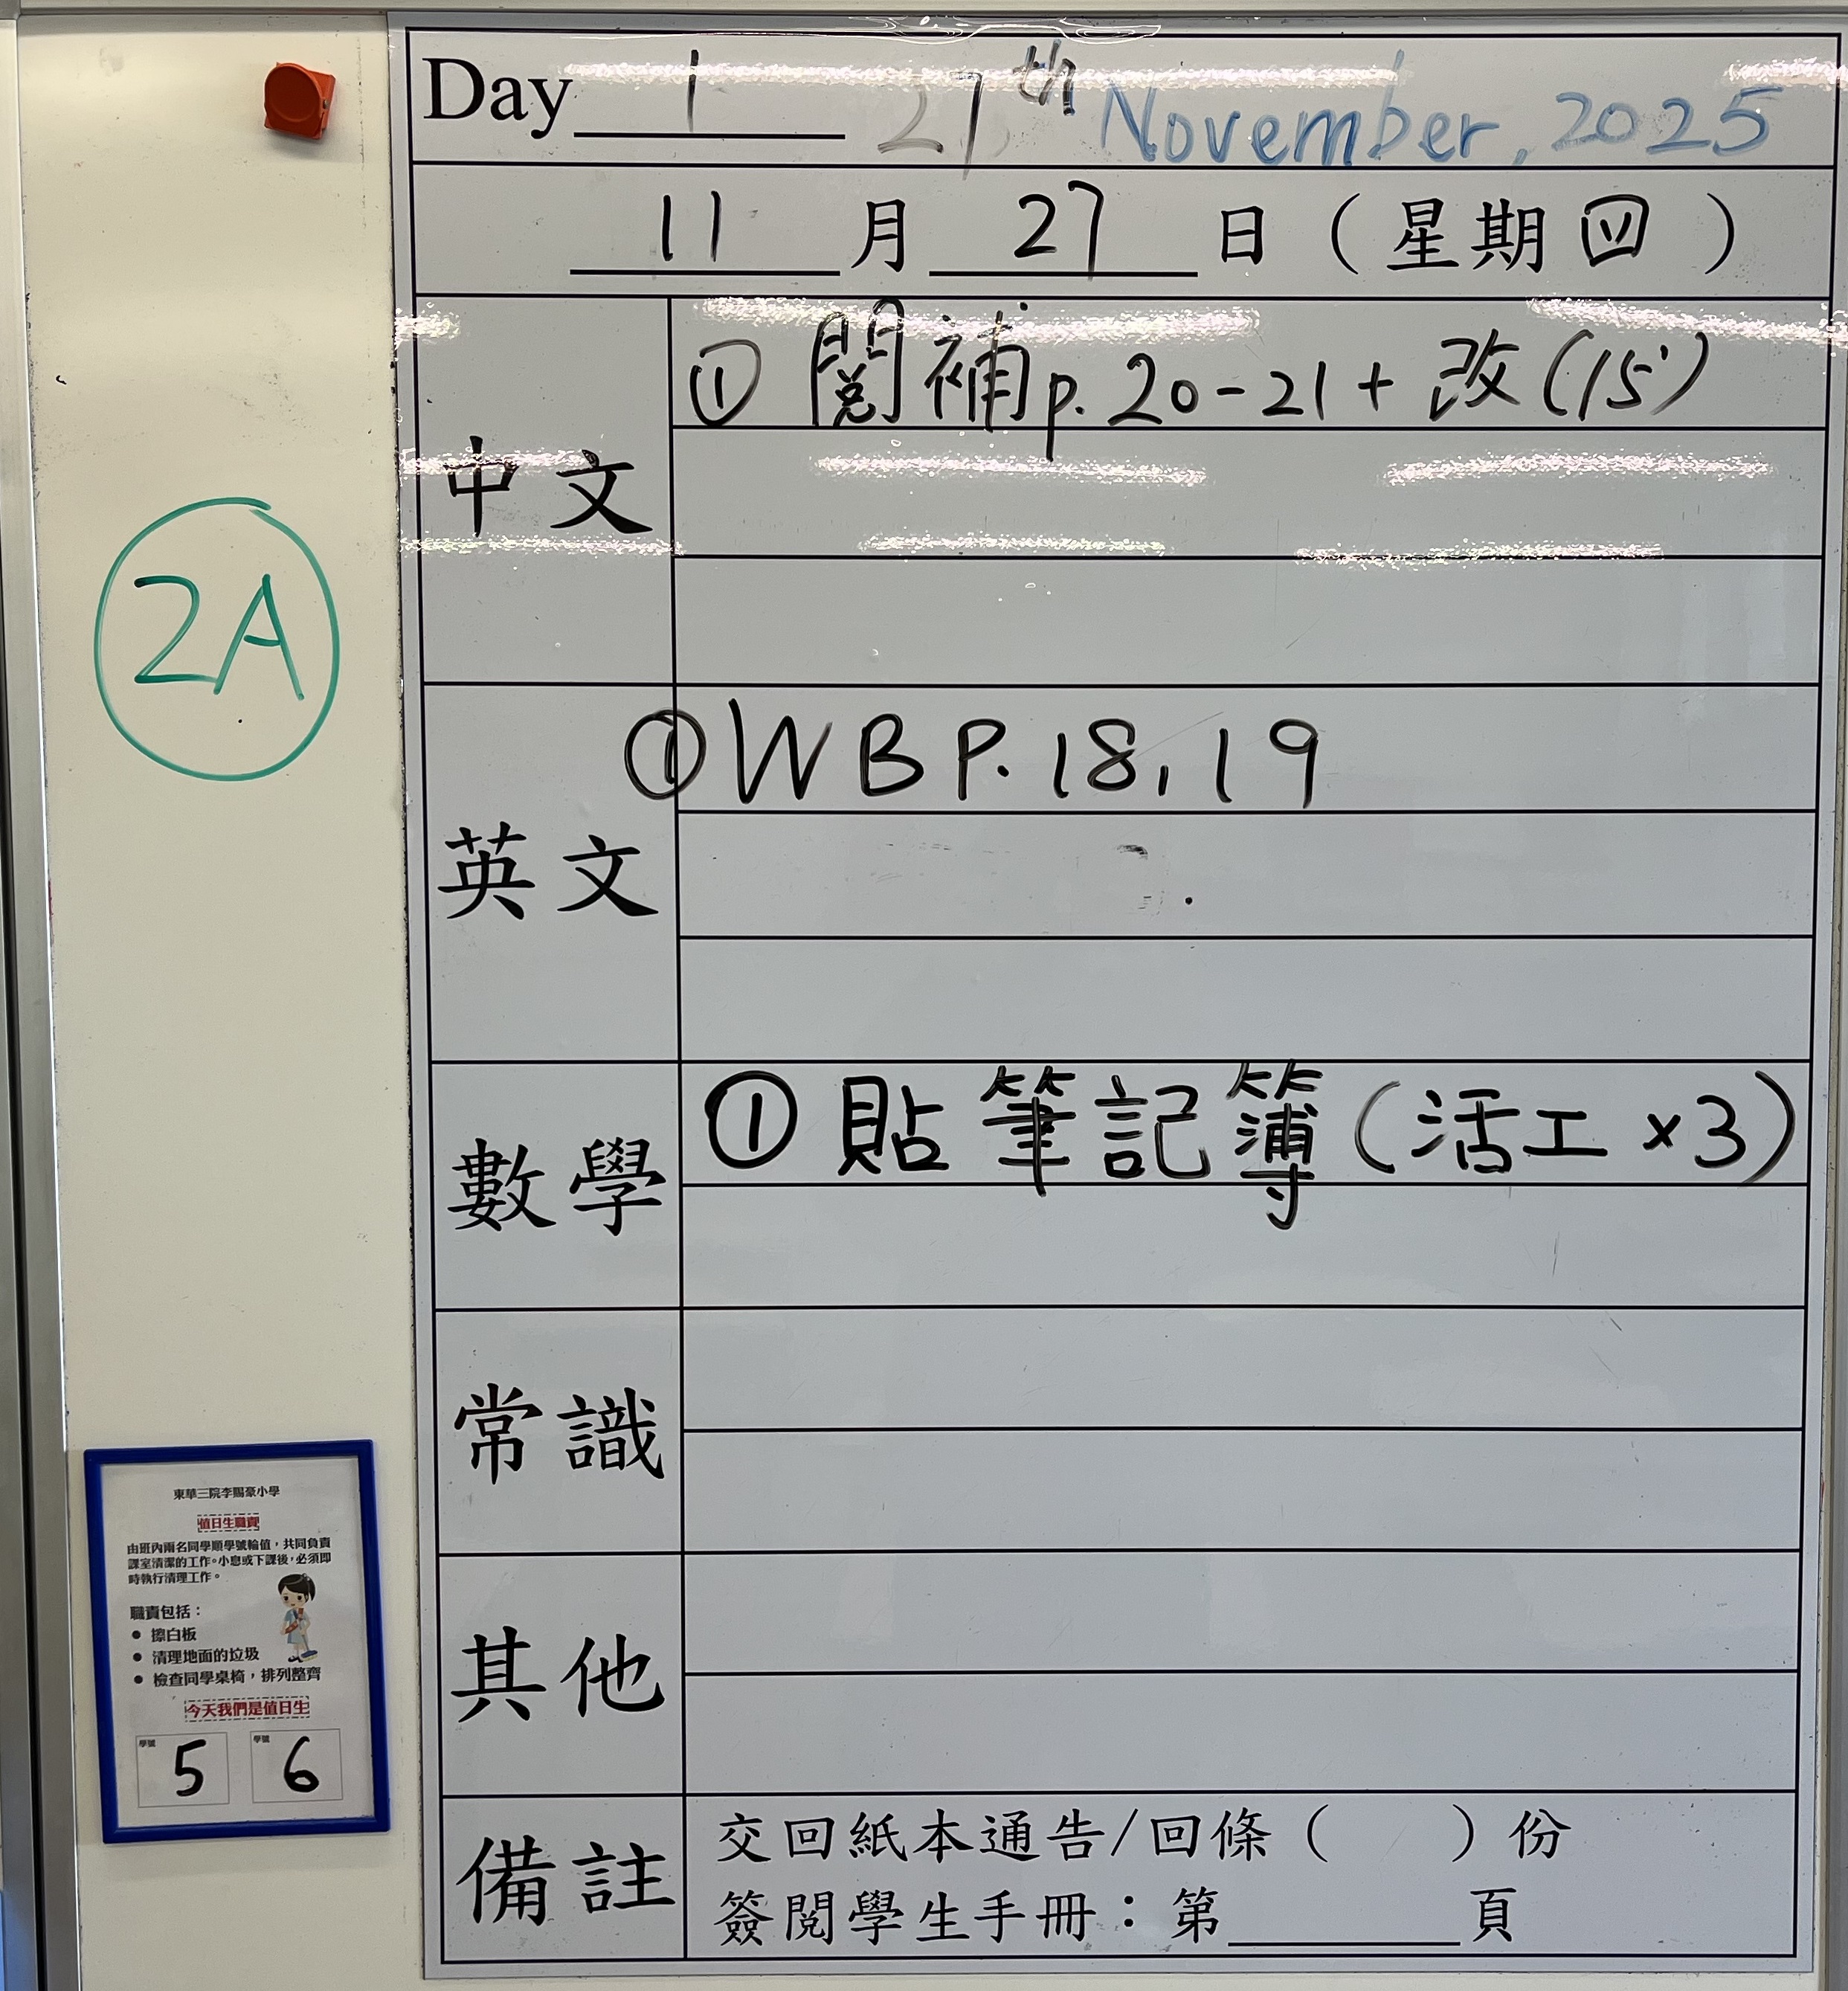 Day 1 27th November, 2025
11 月 27 日 ( 星期四 )
中文
① 閱補 p. 20-21 + 改 (15)
2A
英文
① WB P. 18, 19
數學
① 貼筆記簿 (活工 x3)
常識
其他
備註
交回紙本通告/回條 ( ) 份
簽閱學生手冊：第______頁
東華三院李賜豪小學
值日生職責
由班內兩名同學順學號輪值，共同負責
課室清潔的工作。小息或下課後，必須即
時執行清理工作。
職責包括：
● 擦白板
● 清理地面的垃圾
● 檢查同學桌椅，排列整齊
今天我們是值日生
學號 5 學號 6